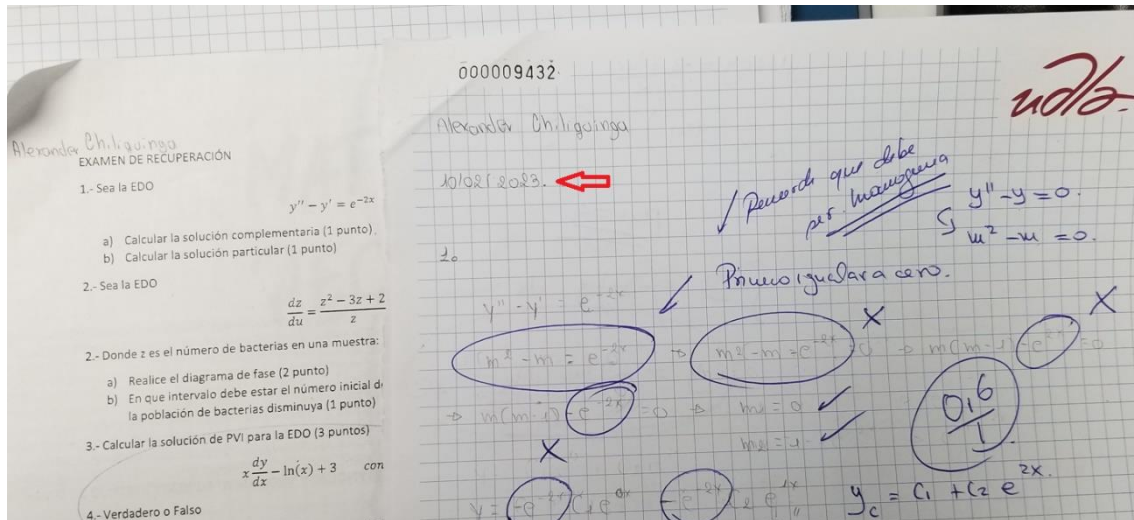 Alexander Chiliquinga
EXAMEN DE RECUPERACIÓN
1.- Sea la EDO
y'' − y' = e^{-2x}
a) Calcular la solución complementaria (1 punto).
b) Calcular la solución particular (1 punto)
2.- Sea la EDO
dz/du = (z² − 3z + 2)/z
2.- Donde z es el número de bacterias en una muestra:
a) Realice el diagrama de fase (2 punto)
b) En que intervalo debe estar el número inicial d
la población de bacterias disminuya (1 punto)
3.- Calcular la solución de PVI para la EDO (3 puntos)
x dy/dx − ln(x) + 3 con
4.- Verdadero o Falso
000009432
udla-
Alexander Chiliquinga
10/02/2023.
que debe
ser homogenea
y'' - y = 0.
m² - m = 0.
1.
Primero igualar a cero.
y'' - y' = e^{-2x}
m² - m = e^{-2x} → m² - m - e^{-2x} = 0 → m(m-1) - e^{-2x} = 0
→ m(m-1) - e^{-2x} = 0 → m = 0
0,6/1
y_c = C1 + C2 e^{2x}.